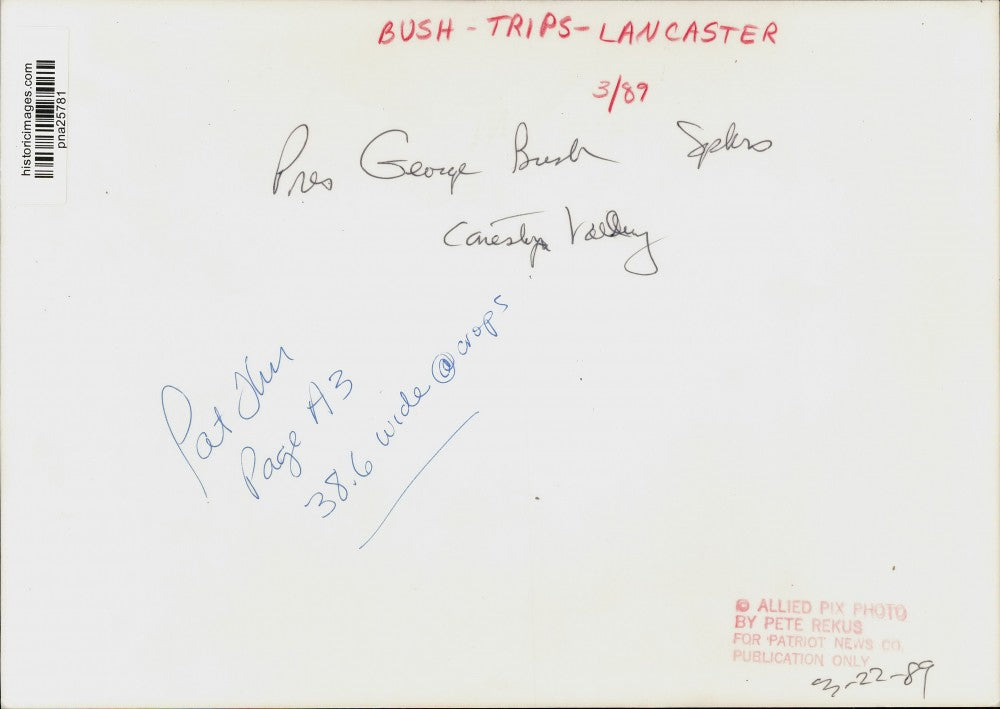 BUSH - TRIPS - LANCASTER
3/89
historicimages.com
pna25781
Pres George Bush Spkrs
Conestoga Valley
Pat
Page A3
38.6 wide @ crops
© ALLIED PIX PHOTO
BY PETE REKUS
FOR PATRIOT NEWS CO.
PUBLICATION ONLY
3-22-89